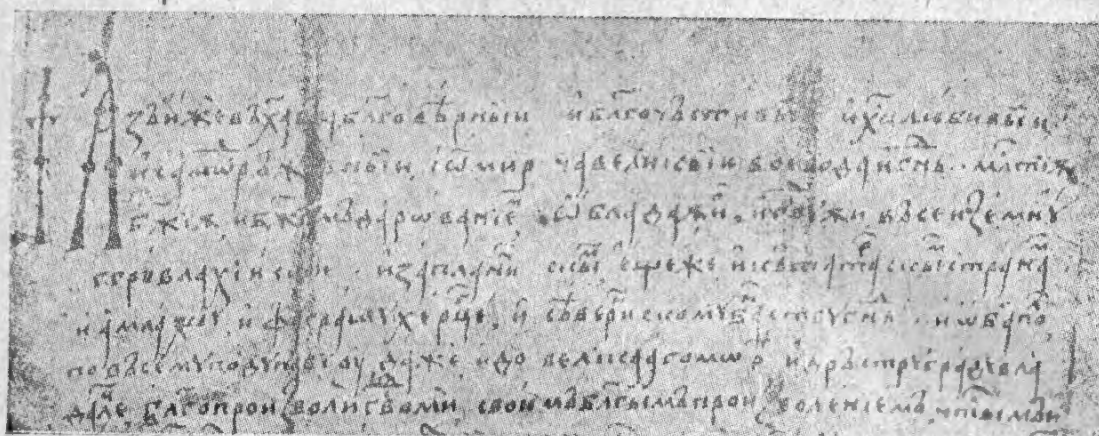 Иꙁъ иже въ ха҃ ба҃ бл҃говѣрныи и бл҃гочъстивыи и хс҃олюбивыи
и самодръжавныи, іѡ мирча великыи воевода и гн҃ъ мл҃стїѫ
бж҃їеѫ и бж҃їемъ дарованїемъ, ѡбладаѫ и гпⷭ҇оуѫи въсеи ꙁемлѧ
ѹггровлахїискои и ꙁапланинскыи еще же и къ татарскыи странамь
и амлашоу и фагарашоу херцегь и сѣверинскомꙋ банствоу гн҃ъ и ѡба по
по въсемꙋ подꙋнавїоу даже и до великаго морѣ и дръстрꙋ градꙋ вла
далець бл҃гопроиꙁволи гв҃оми своимъ бл҃гымъ проиꙁволенїемъ, чⷭ҇тымъ и